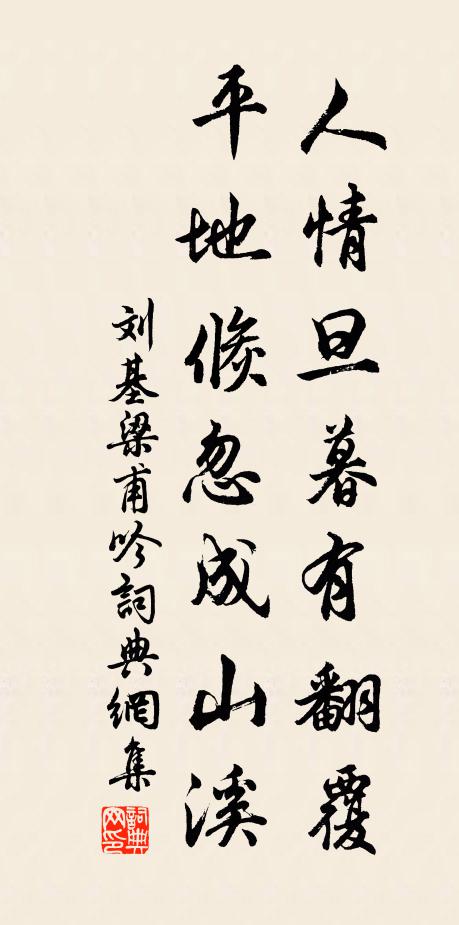 人情旦暮有翻覆
平地倐忽成山溪
刘基梁甫吟詞典網集
詞典
网印